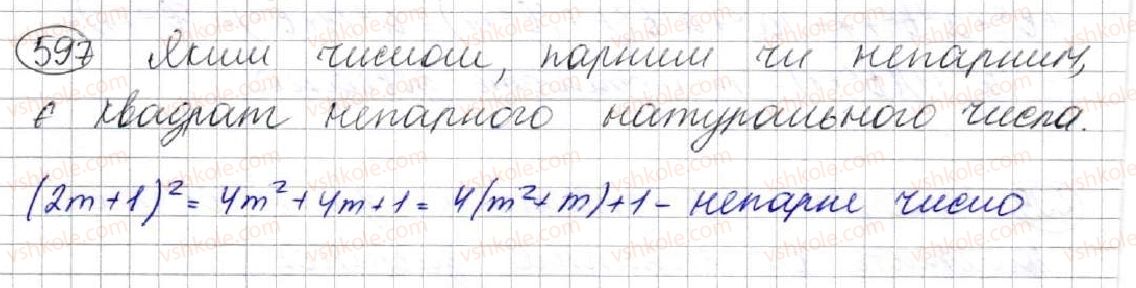 597 Яким числом, парним чи непарним,
є квадрат непарного натурального числа.
(2m+1)² = 4m² + 4m + 1 = 4(m² + m) + 1 - непарне число